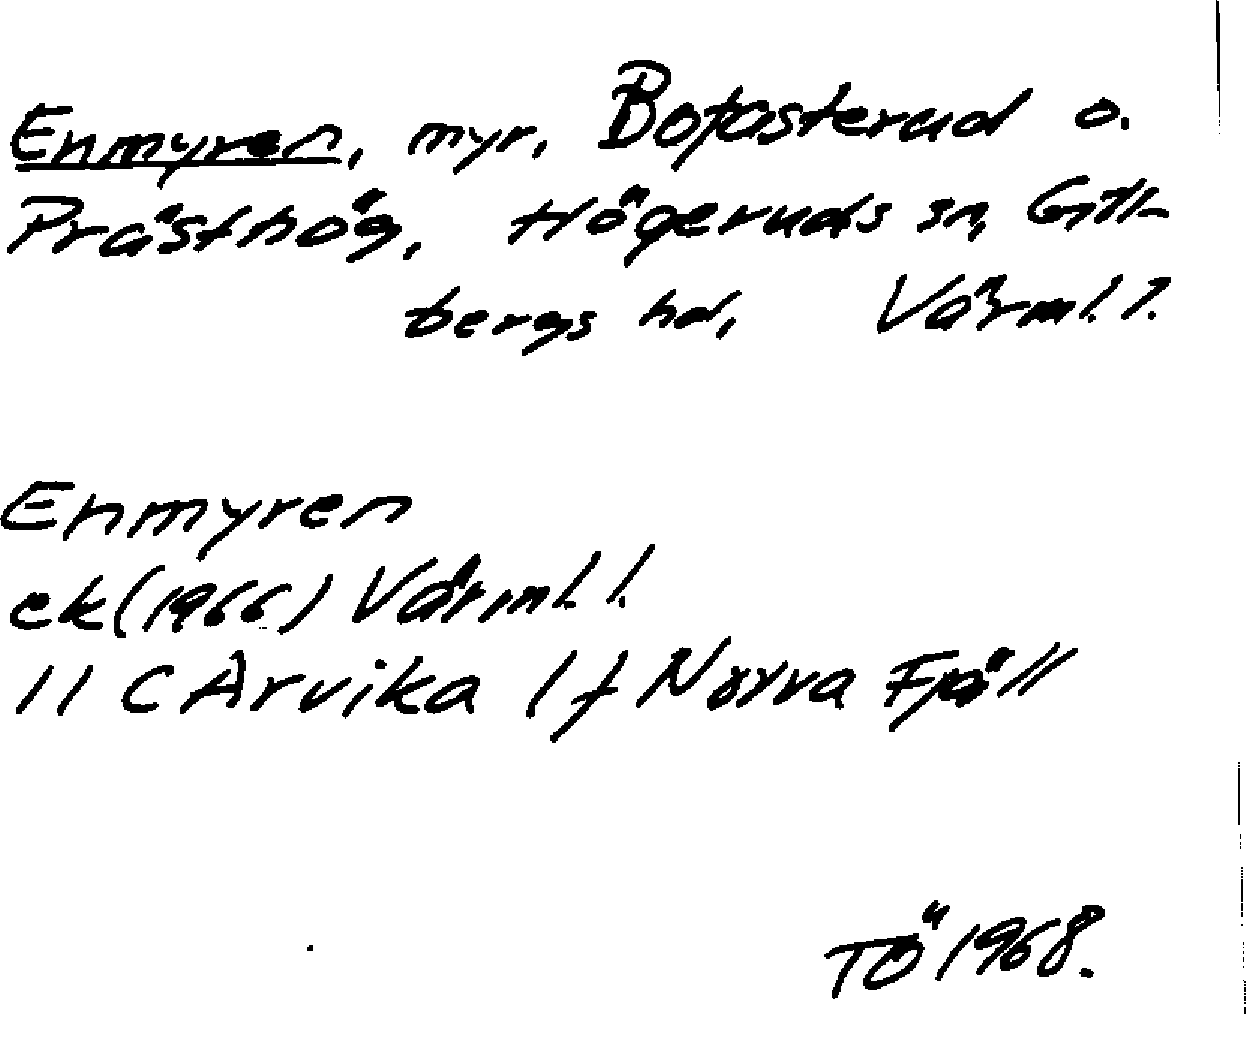 Enmyren, myr, Bofasterud o.
Prästhög, Högeruds sn, Gill-
bergs hd, Värml. l.
Enmyren
ek (1966) Värml. l.
11 C Arvika 1 f Norra Fjöll
TÖ 1968.